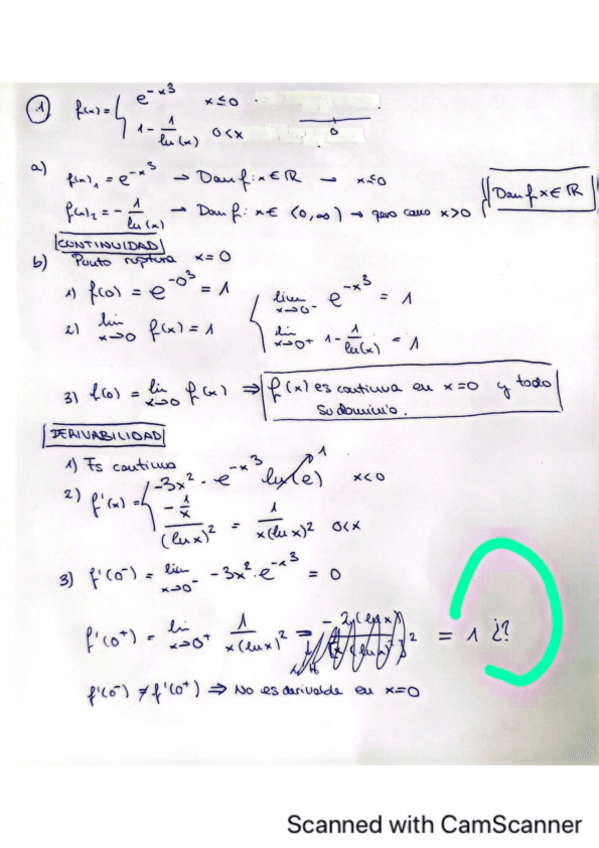 1 f(x) = { e^{-x^3} x ≤ 0
1 - 1/ln(x) 0 < x
0
a) f(x)₁ = e^{-x^3} → Dom f: x ∈ ℝ → x ≤ 0
f(x)₂ = - 1/ln(x) → Dom f: x ∈ (0, ∞) → pero como x > 0
Dom f x ∈ ℝ
CONTINUIDAD
b) Punto ruptura x = 0
1) f(0) = e^{-0^3} = 1
2) lim x→0 f(x) = 1 { lim x→0⁻ e^{-x^3} = 1
lim x→0⁺ 1 - 1/ln(x) = 1
3) f(0) = lim x→0 f(x) ⇒ f(x) es continua en x = 0 y todo
su dominio.
DERIVABILIDAD
1) Es continua
2) f'(x) = { -3x² · e^{-x^3} ln(e) 1 x < 0
-1/x / (ln x)² = 1 / x(ln x)² 0 < x
3) f'(0⁻) = lim x→0⁻ -3x² · e^{-x^3} = 0
f'(0⁺) = lim x→0⁺ 1 / x(ln x)² = = 1 ¿?
f'(0⁻) ≠ f'(0⁺) ⇒ No es derivable en x = 0
Scanned with CamScanner